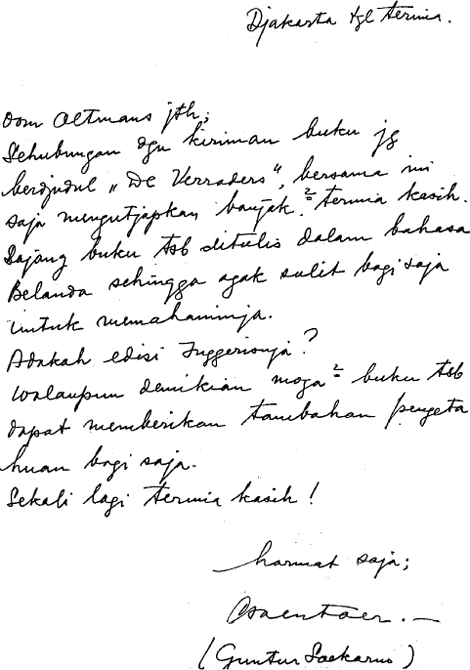 Djakarta tgl terima.
Oom Oltmans jth;
Sehubungan dgn kiriman buku jg
berdjudul „De Verraders", bersama ini
saja mengutjapkan banjak² terima kasih.
Sajang buku tsb ditulis dalam bahasa
Belanda sehingga agak sulit bagi saja
untuk memahaminja.
Adakah edisi Inggerisnja?
Walaupun demikian moga² buku tsb
dapat memberikan tambahan pengeta
huan bagi saja.
Sekali lagi terima kasih!
hormat saja;
(Guntur Soekarno)